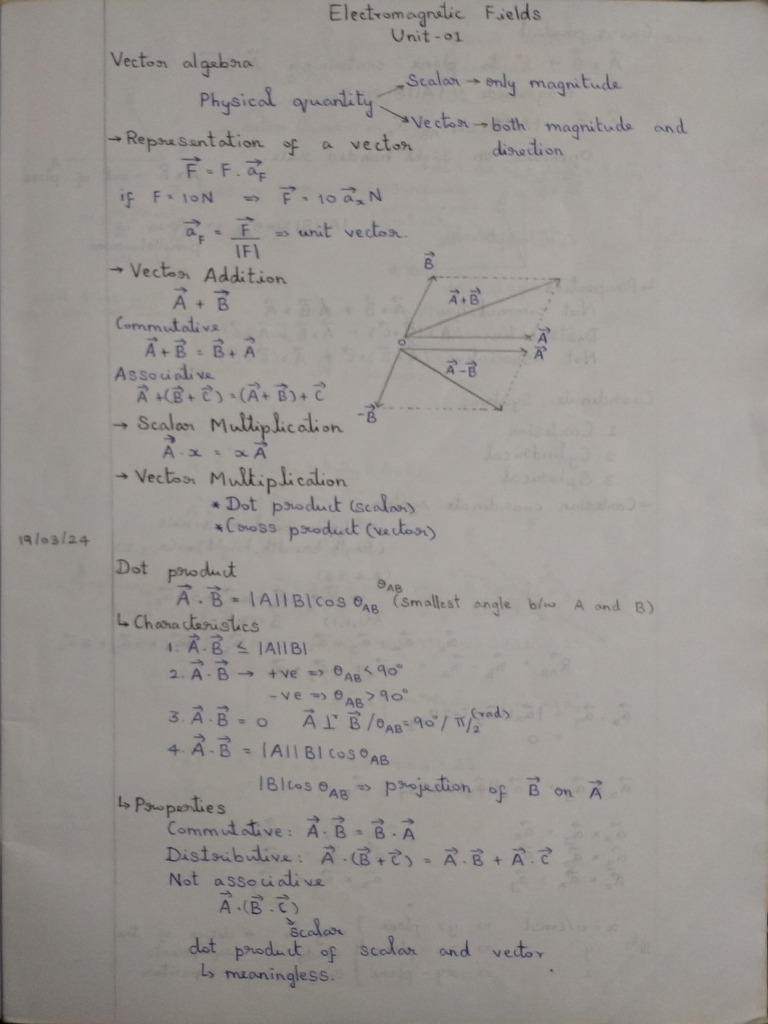 Electromagnetic Fields
Unit-01
Vector algebra
Physical quantity → Scalar → only magnitude
→ Vector → both magnitude and direction
→ Representation of a vector
F⃗ = F. a⃗_F
if F = 10N ⇒ F⃗ = 10 a⃗_x N
a⃗_F = F⃗ / |F| ⇒ unit vector.
→ Vector Addition
A⃗ + B⃗
Commutative
A⃗ + B⃗ = B⃗ + A⃗
Associative
A⃗ + (B⃗ + C⃗) = (A⃗ + B⃗) + C⃗
B⃗
A⃗+B⃗
O
A⃗
A⃗
A⃗-B⃗
-B⃗
→ Scalar Multiplication
A⃗ · x = x A⃗
→ Vector Multiplication
* Dot product (scalar)
* Cross product (vector)
19/03/24
Dot product
A⃗ . B⃗ = |A||B| cos θ_AB θ_AB (smallest angle b/w A and B)
↳ Characteristics
1. A⃗ . B⃗ ≤ |A||B|
2. A⃗ . B⃗ → +ve ⇒ θ_AB < 90°
-ve ⇒ θ_AB > 90°
3. A⃗ . B⃗ = 0 A⃗ ⊥ B⃗ / θ_AB = 90° / π/2 (rad)
4. A⃗ . B⃗ = |A||B| cos θ_AB
|B| cos θ_AB ⇒ projection of B⃗ on A⃗
↳ Properties
Commutative: A⃗ . B⃗ = B⃗ . A⃗
Distributive: A⃗ . (B⃗ + C⃗) = A⃗ . B⃗ + A⃗ . C⃗
Not associative
A⃗ . (B⃗ . C⃗)
↘ scalar
dot product of scalar and vector
↳ meaningless.